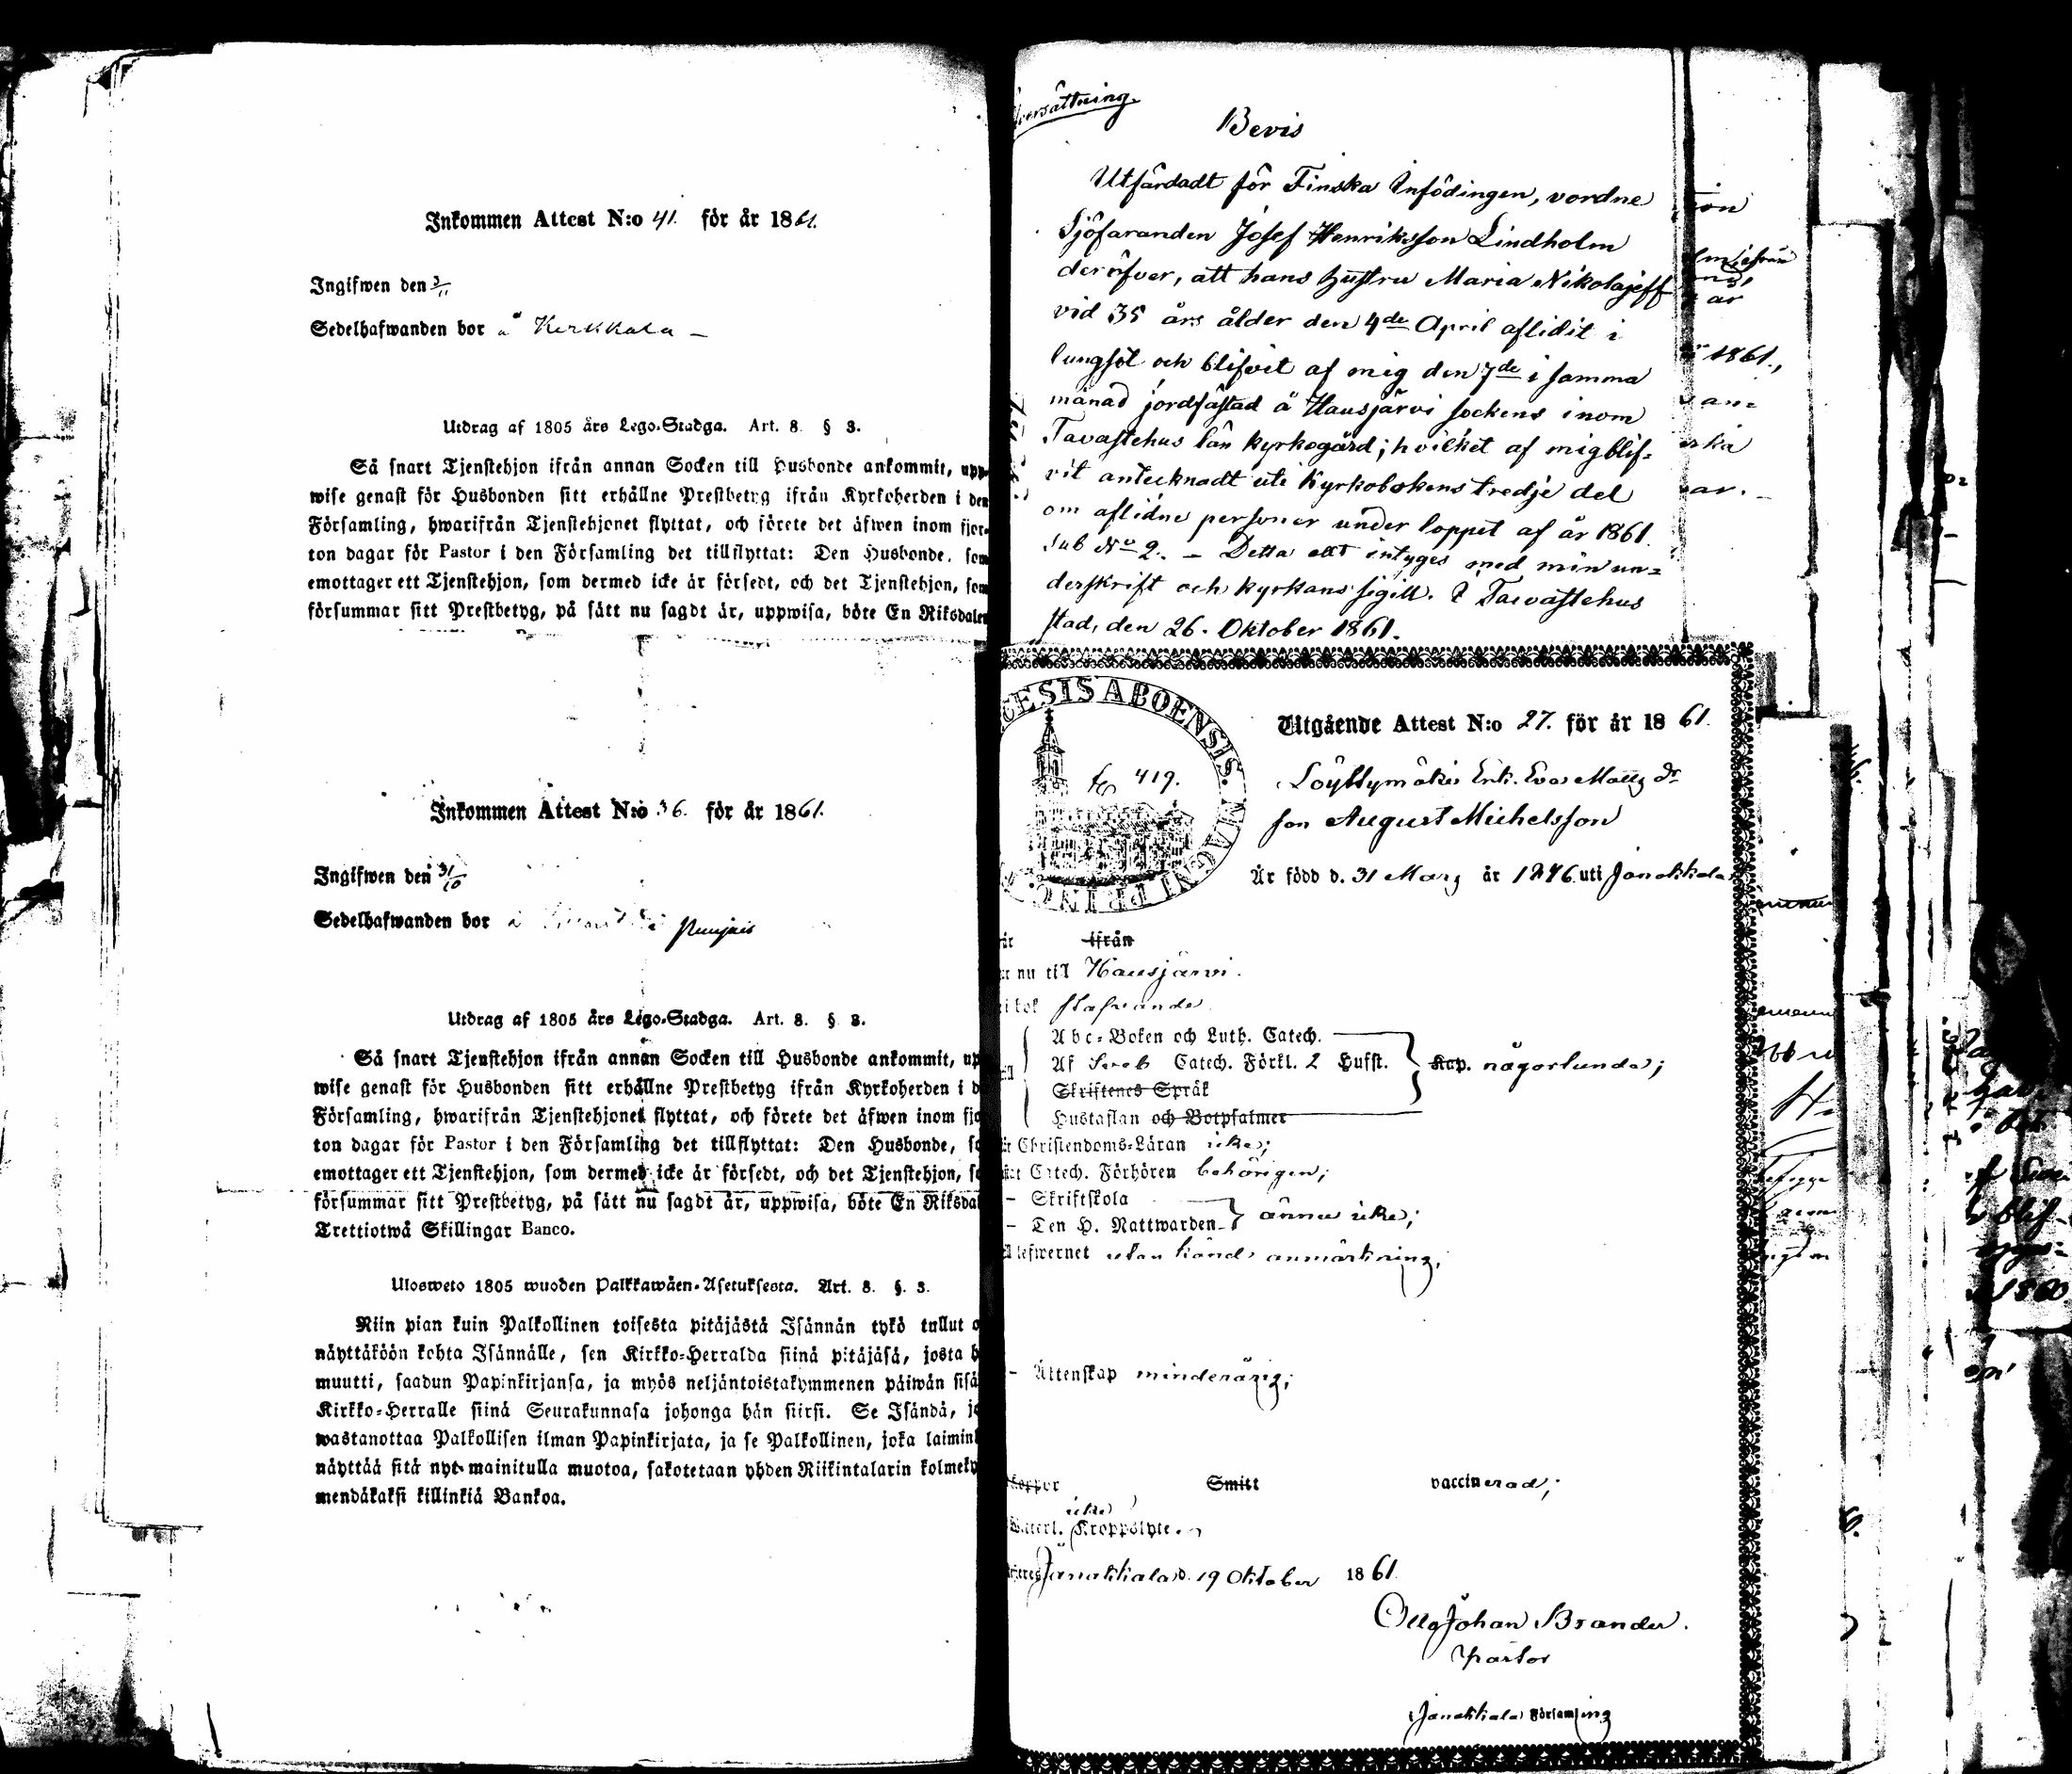 Inkommen Attest N:o 41. för år 1861.
Ingifwen den 3/11
Sedelhafwanden bor å Kerkkala –
Utdrag af 1805 års Lego-Stadga. Art. 8. § 3.
Så snart Tjenstehjon ifrån annan Socken till Husbonde ankommit, upp-
wise genast för Husbonden sitt erhållne Prestbetyg ifrån Kyrkoherden i den
Församling, hwarifrån Tjenstehjonet flyttat, och förete det äfwen inom fjor-
ton dagar för Pastor i den Församling det tillflyttat: Den Husbonde, som
emottager ett Tjenstehjon, som dermed icke är försedt, och det Tjenstehjon, som
försummar sitt Prestbetyg, på sätt nu sagdt är, uppwisa, böte En Riksdaler
Inkommen Attest N:o 36. för år 1861.
Ingifwen den 31/10
Sedelhafwanden bor å
Utdrag af 1805 års Lego-Stadga. Art. 8. § 3.
Så snart Tjenstehjon ifrån annan Socken till Husbonde ankommit, up
wise genast för Husbonden sitt erhållne Prestbetyg ifrån Kyrkoherden i d
Församling, hwarifrån Tjenstehjonet flyttat, och förete det äfwen inom fjo
ton dagar för Pastor i den Församling det tillflyttat: Den Husbonde, so
emottager ett Tjenstehjon, som dermed icke är försedt, och det Tjenstehjon, so
försummar sitt Prestbetyg, på sätt nu sagdt är, uppwisa, böte En Riksdal
Trettiotwå Skillingar Banco.
Ulosweto 1805 wuoden Palkkawäen-Asetuksesta. Art. 8. §. 3.
Niin pian kuin Palkollinen toisesta pitäjästä Isännän tykö tullut o
näyttäköön kohta Isännälle, sen Kirkko-Herralda siinä pitäjäsä, josta h
muutti, saadun Papinkirjansa, ja myös neljäntoistakymmenen päiwän sisä
Kirkko-Herralle siinä Seurakunnasa johonga hän siirsi. Se Isändä, jo
wastanottaa Palkollisen ilman Papinkirjata, ja se Palkollinen, joka laimin
näyttää sitä nyt mainitulla muotoa, sakotetaan yhden Riikintalarin kolmeky
mendäkaksi killinkiä Bankoa.
Öfversättning.
Bevis
Utfärdadt för Finska Infödingen, vordne
Sjöfaranden Josef Henriksson Lindholm
deröfver, att hans hustru Maria Nikolajeff
vid 35 års ålder den 4de April aflidit i
lungsot och blifvit af mig den 7de i samma
månad jordfästad å Hausjärvi sockens inom
Tavastehus län kyrkogård; hvilket af mig blif-
vit antecknadt uti Kyrkobokens tredje del
om aflidne personer under loppet af år 1861
sub No 2. – Detta allt intyges med min un-
derskrift och kyrkans sigill. I Tavastehus
stad, den 26. Oktober 1861.
CESIS ABOENSIS. MAGNI PRINC.
419.
Utgående Attest N:o 27. för år 1861.
Löyttymäki Enk. Eva Mattsdr
son August Michelsson
Är född d. 31 Mars år 1846 uti Janakkala
ifrån
nu till Hausjärvi.
bok stafvande
Abc-Boken och Luth. Catech.
Af Sveb Catech. Förkl. 2 Hufst. Kap. någorlunda;
Skriftenes Språk
Hustaflan och Botpsalmer
Christendoms-Läran icke;
Catech. Förhören behörigen;
– Skriftskola
– Den H. Nattwarden ännu icke;
lefwernet utan känd anmärkning,
– Äktenskap minderårig;
koppor Smitt vaccinerad;
icke
Kroppslyte.
Janakkala d. 19 Oktober 1861
Otto Johan Brander.
Pastor
Janakkala Församling